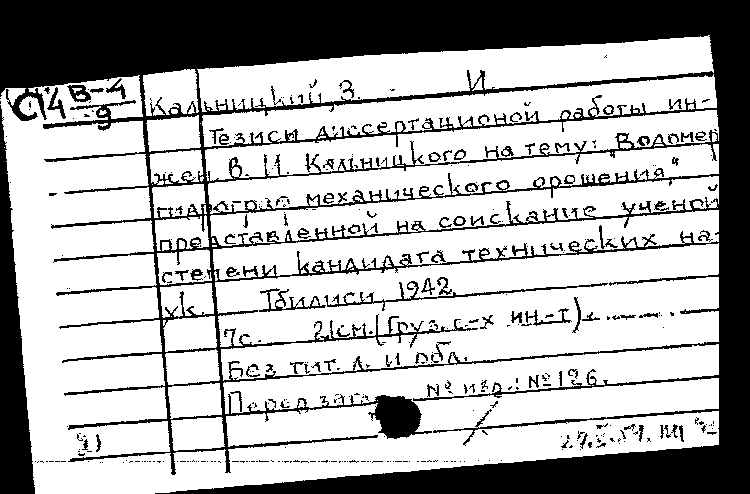 С14 В-4
9
Кальницкий, З. И.
Тезисы диссертационой работы ин-
жен. В. И. Кальницкого на тему: „Водомер
гидрограф механического орошения,"
представленной на соискание ученой
степени кандидата технических на-
ук. Тбилиси, 1942.
7с. 21см. (Груз. с-х ин-т).
Без тит. л. и обл.
Перед заг. № изд.: № 126.